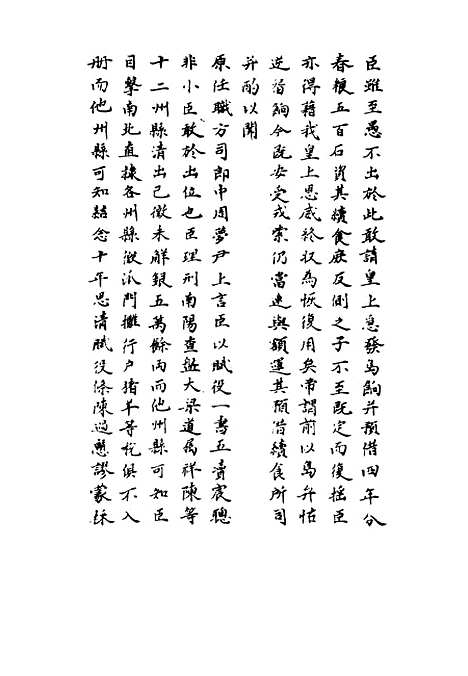 臣雖至愚不出於此敢請皇上急發馬餉并預借四年分
春糧五百石資其續食庶反側之子不至既定而復搖臣
亦得藉我皇上恩威終收為恢復用矣帝謂前以馬升怙
逆暫餉今既安受戎索仍當速與額運其預借續食所司
并酌以聞
原任職方司郎中周夢尹上言臣以賦役一書五瀆宸聰
非小臣敢於出位也臣理刑南陽查盤大梁道屬祥陳等
十二州縣清出已徵未解銀五萬餘兩而他州縣可知臣
目擊南北直據各州縣徵派門攤行户猪羊等稅俱不入
册而他州縣可知結念十年思清賦役條陳過懇謬蒙採